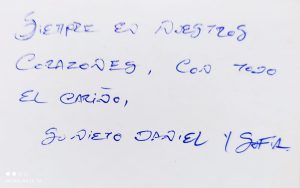 SIEMPRE EN NUESTROS
CORAZONES, CON TODO
EL CARIÑO,
SU NIETO DANIEL Y SOFIA.